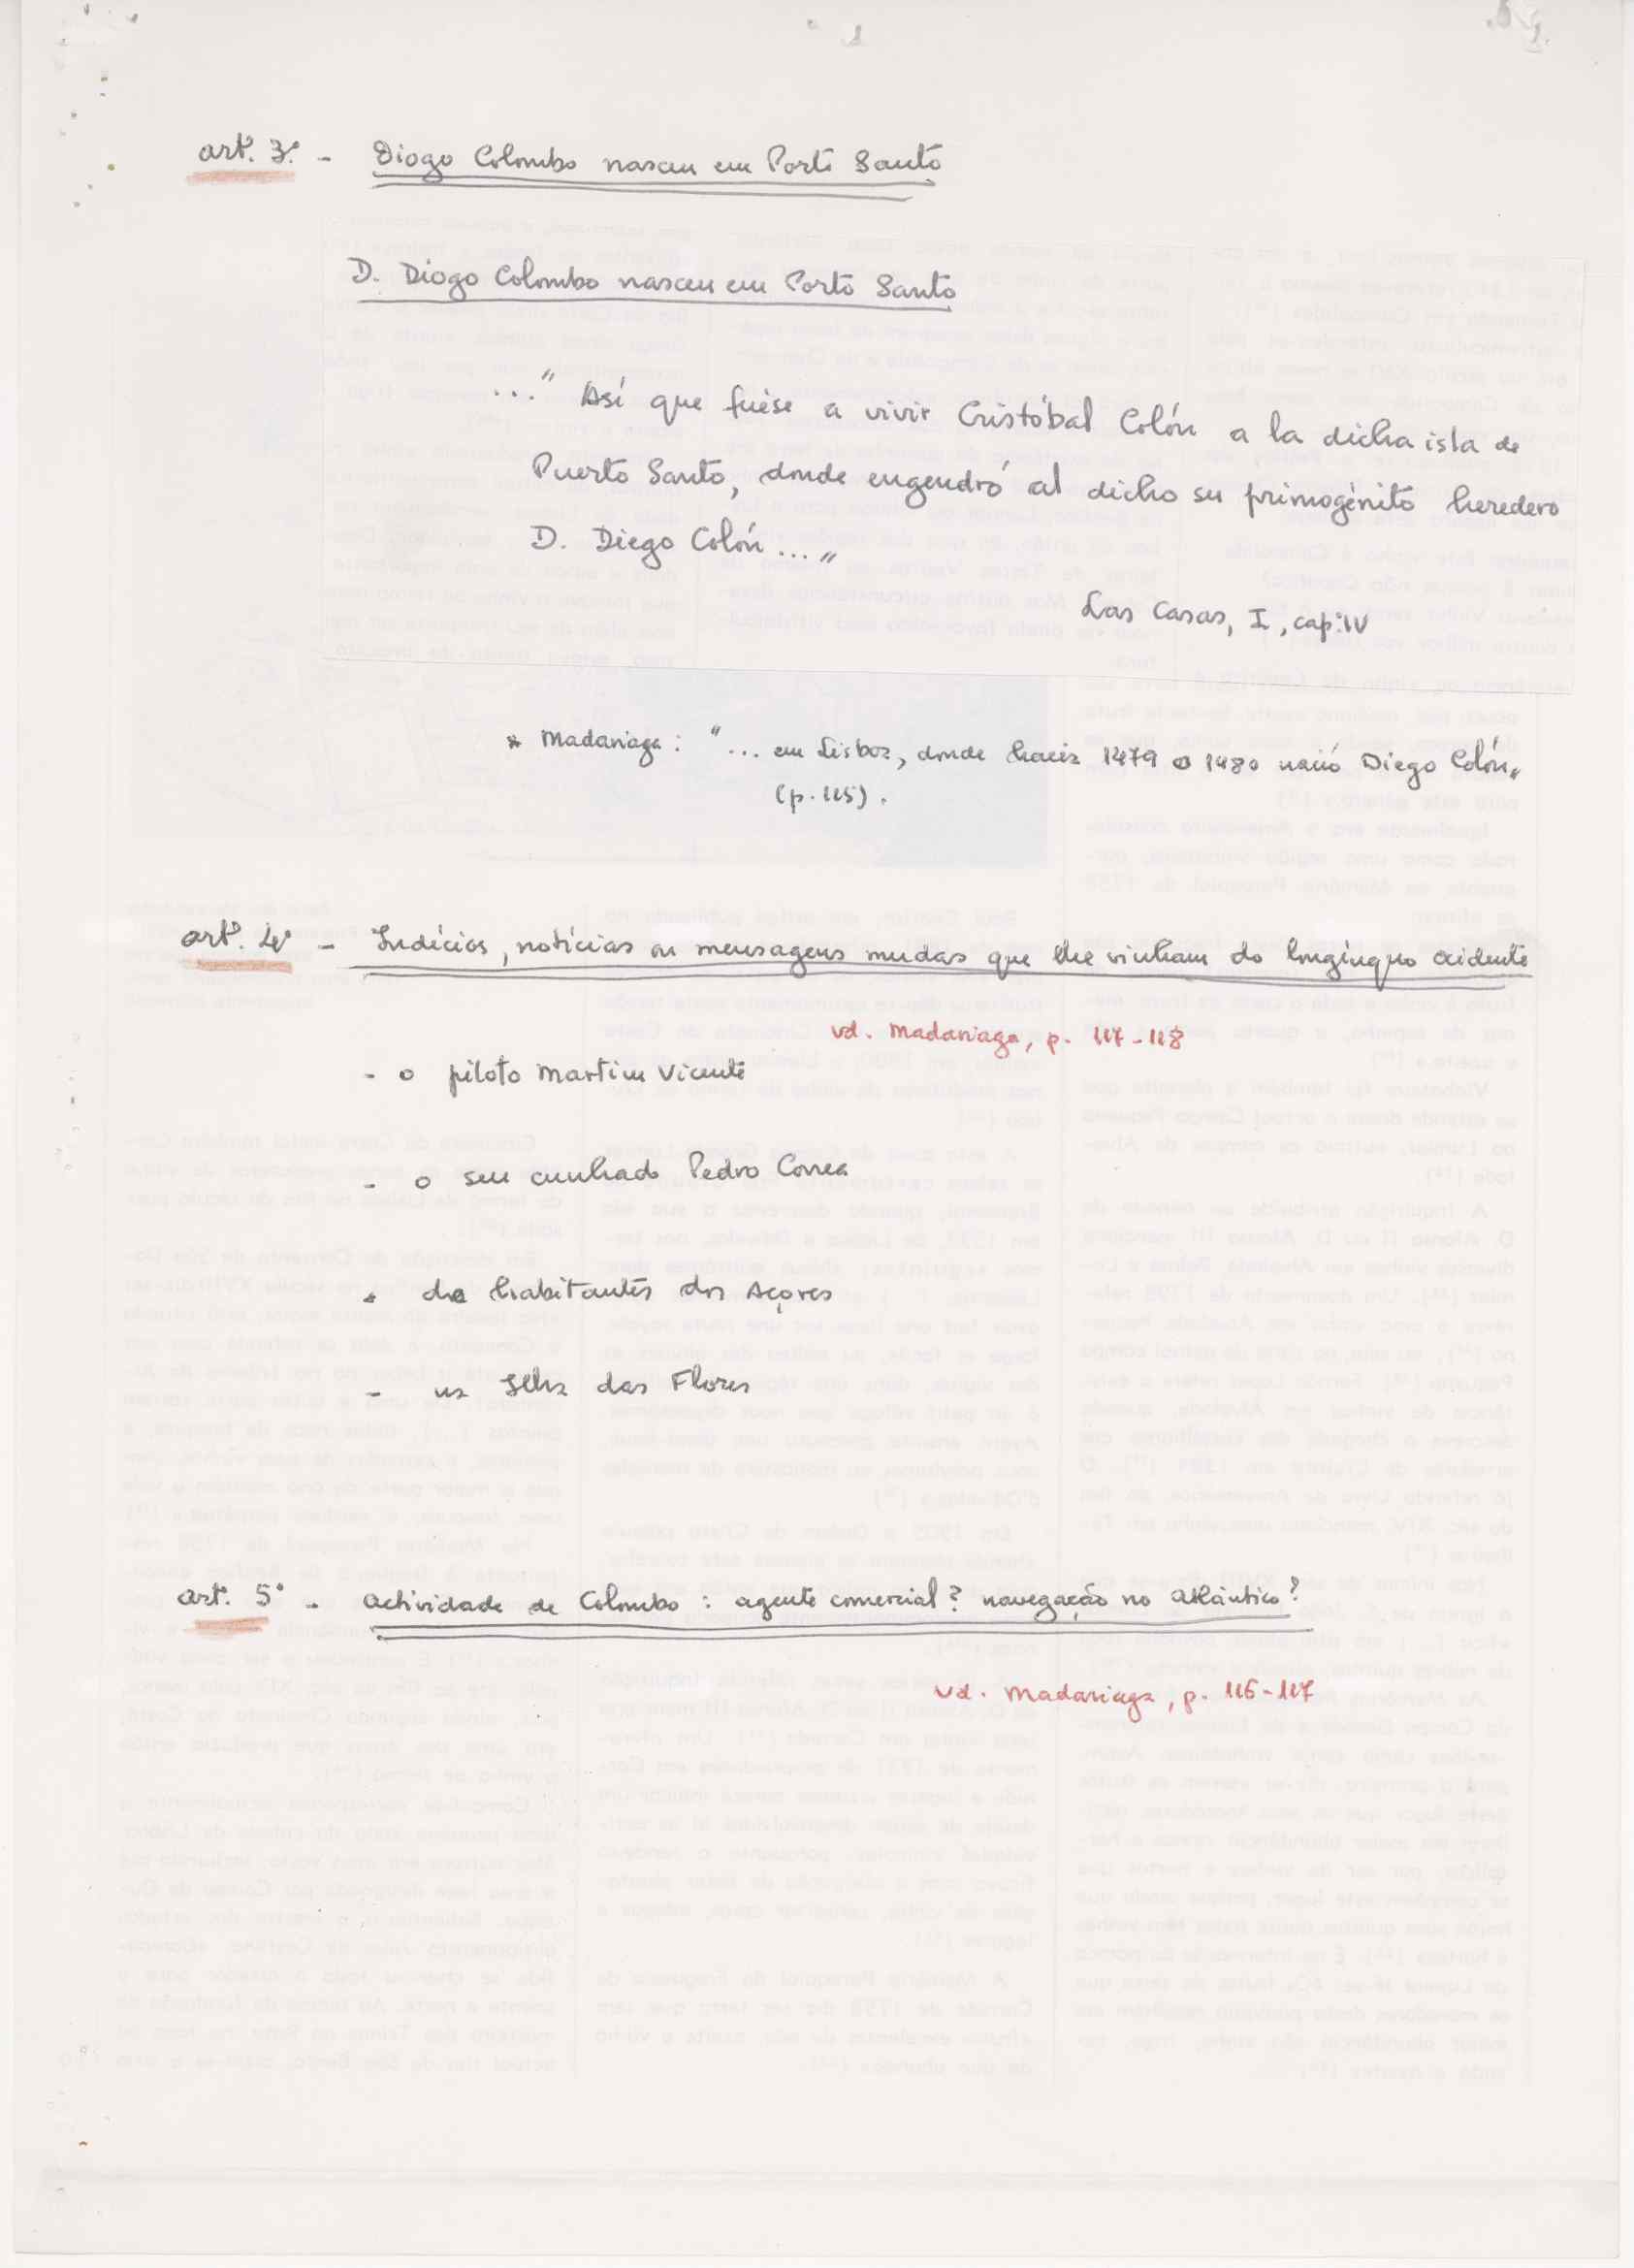 artº. 3º - Diogo Colombo nasceu em Porto Santo
D. Diogo Colombo nasceu em Porto Santo
..." Así que fuése a vivir Cristóbal Colón a la dicha isla de
Puerto Santo, donde engendró al dicho su primogénito heredero
D. Diego Colón ... "
Las Casas, I, cap: IV
* Madariaga: "... em Lisboa, donde hacia 1479 o 1480 nació Diego Colón"
(p. 115).
artº. 4º - Indícios, notícias ou mensagens mudas que lhe vinham do longínquo ocidente
vd. Madariaga, p. 117-118
- o piloto Martim Vicente
- o seu cunhado Pedro Correa
- de habitantes dos Açores
- na Ilha das Flores
artº. 5º - Actividade de Colombo : agente comercial? navegação no Atlântico?
vd. Madariaga, p. 116-117